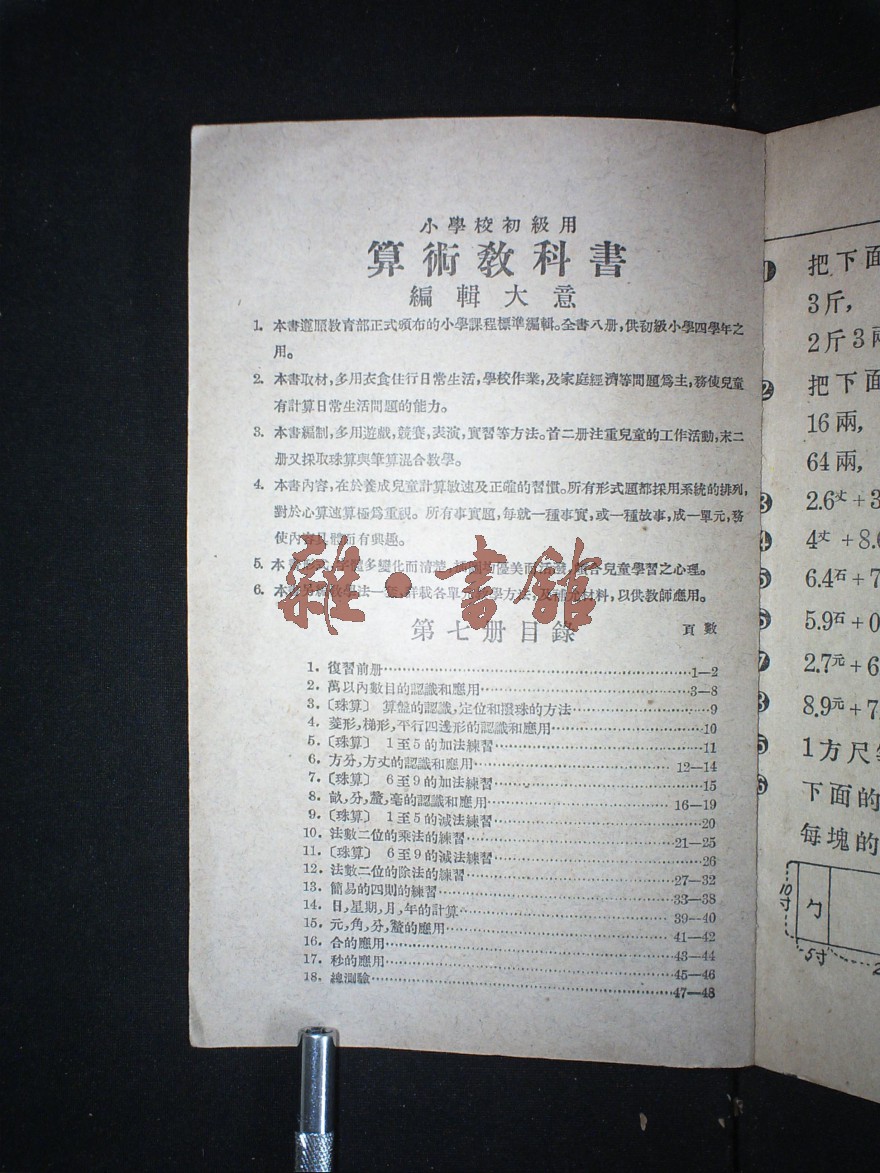 小學校初級用
算術教科書
編輯大意
1. 本書遵照教育部正式頒布的小學課程標準編輯。全書八册，供初級小學四學年之
用。
2. 本書取材，多用衣食住行日常生活，學校作業，及家庭經濟等問題爲主，務使兒童
有計算日常生活問題的能力。
3. 本書編制，多用遊戲，競賽，表演，實習等方法。首二册注重兒童的工作活動，末二
册又採取珠算與筆算混合教學。
4. 本書內容，在於養成兒童計算敏速及正確的習慣。所有形式題都採用系統的排列，
對於心算速算極爲重視。所有事實題，每就一種事實，或一種故事，成一單元，務
使內容具體而有興趣。
5. 本書 字體多變化而清楚， 優美而 兒童學習之心理。
6. 本書另編教學法一 詳載各單 學方法，及補充材料，以供教師應用。
雜·書館
第七册目錄 頁數
1. 復習前册 1—2
2. 萬以內數目的認識和應用 3—8
3. 〔珠算〕 算盤的認識，定位和撥珠的方法 9
4. 菱形，梯形，平行四邊形的認識和應用 10
5. 〔珠算〕 1至5的加法練習 11
6. 方分，方丈的認識和應用 12—14
7. 〔珠算〕 6至9的加法練習 15
8. 畝，分，釐，毫的認識和應用 16—19
9. 〔珠算〕 1至5的減法練習 20
10. 法數二位的乘法的練習 21—25
11. 〔珠算〕 6至9的減法練習 26
12. 法數二位的除法的練習 27—32
13. 簡易的四則的練習 33—38
14. 日，星期，月，年的計算 39—40
15. 元，角，分，釐的應用 41—42
16. 合的應用 43—44
17. 秒的應用 45—46
18. 總測驗 47—48
把下面
3斤，
2斤3兩
把下面
16兩，
64兩，
2.6丈+3
4丈+8.6
6.4石+7
5.9石+0
2.7元+6
8.9元+7
1方尺
下面的
每塊的
10寸
勺
5寸